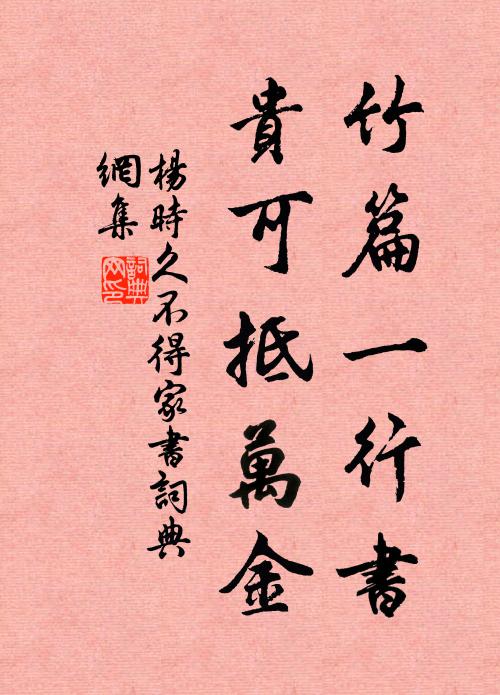 竹篇一行書
貴可抵萬金
楊時久不得家書詞典
網集
詞典
网印